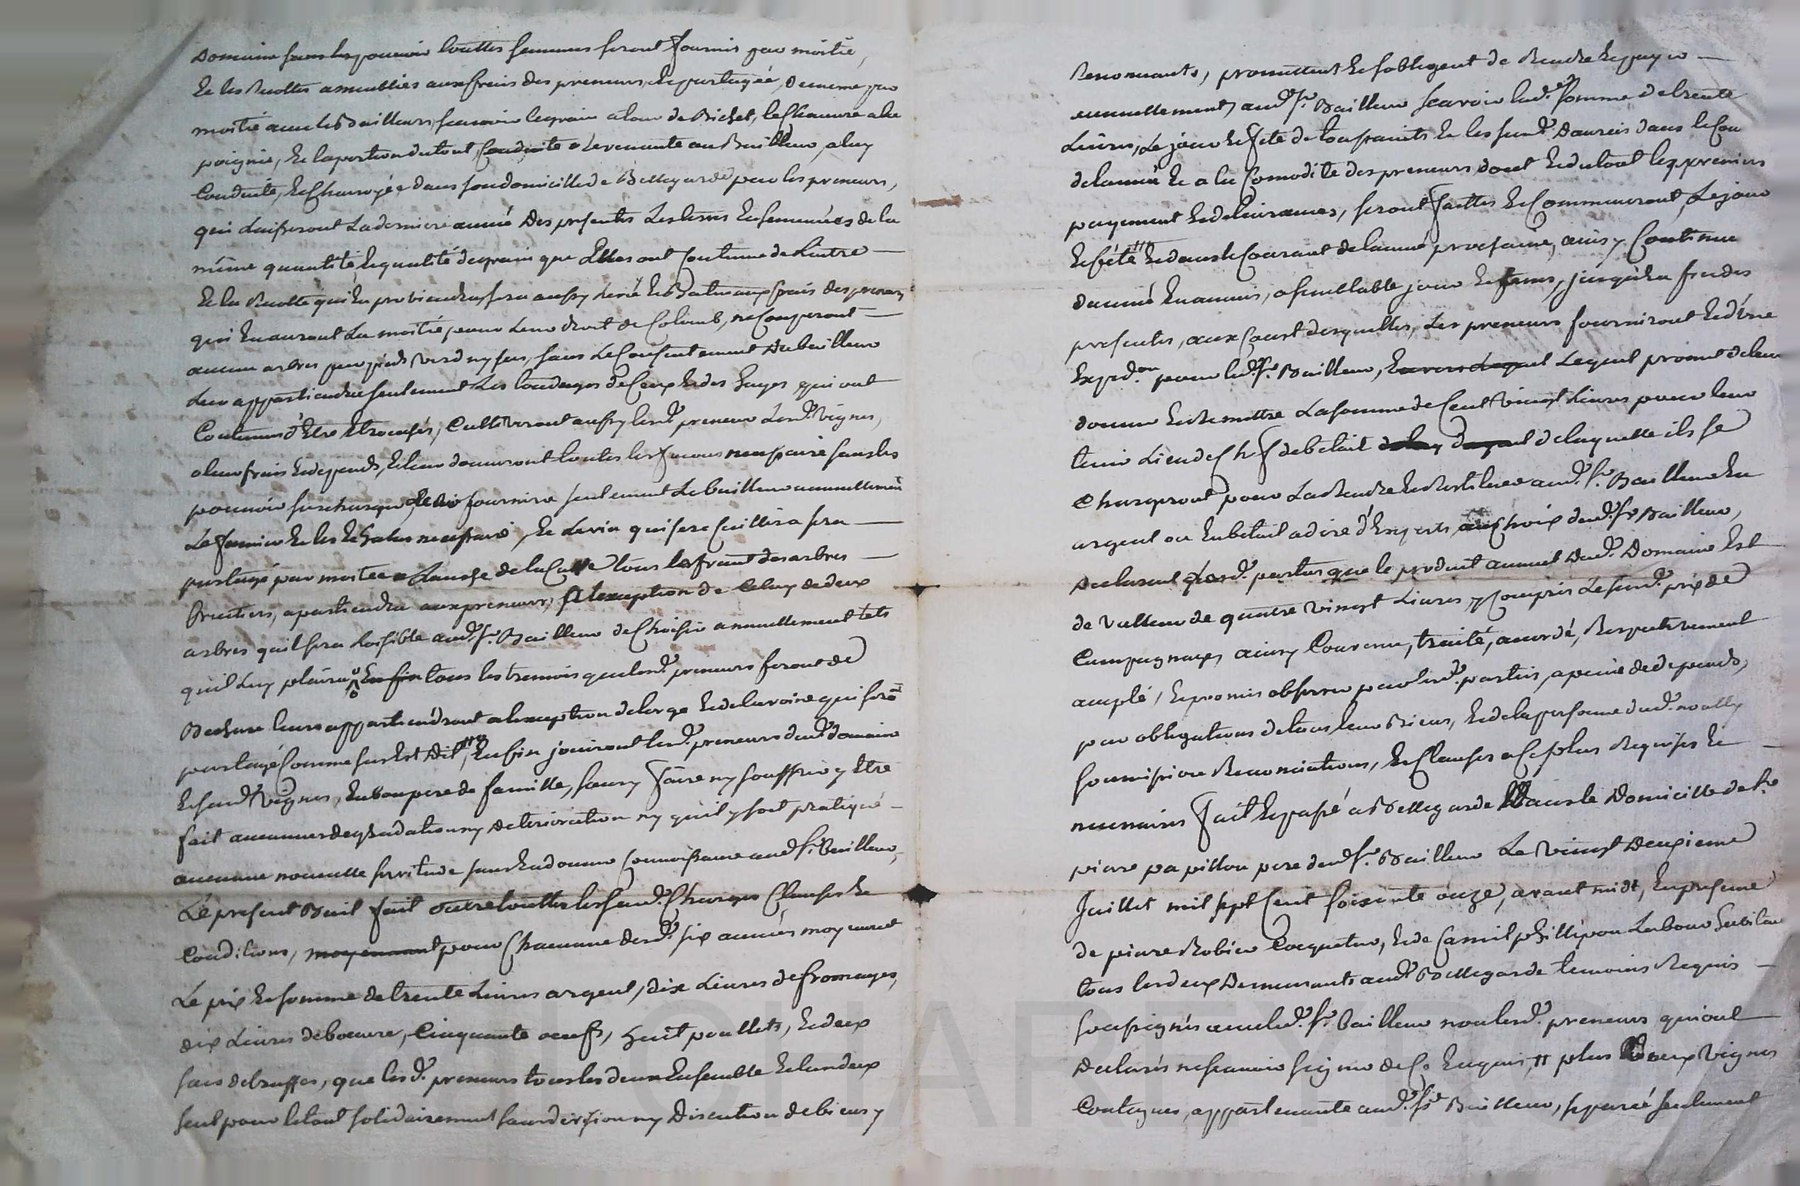 Domaine sans les pouvoir touttes semances seront fournis par moitié,
Et les Recoltes ameublies aux frais des preneurs, et partagée, de meme par
moitié avec les Bailleurs, scavoir le grain a la de Bichet, le Chanvre a la
poignie, Et la portion du tout Revenante au Bailleur, a luy
Conduitte, et Charroyée dans son domicille de Bellegarde par les preneurs,
qui laisseront La derniere année Des presentes Les terres Ensemencées de la
même quantité Et qualité de grain que Elles ont Coutume de L'être
Et la Recolte qui En proviendra, sera aussy levé Et Batue aux frais des preneurs
qui En auront La moitié, pour Leur droit de Colout, ne Couperont
aucun arbres par pieds verd ny sec, sans Le Consentement du bailleur
Leur appartiendra seulement Les tondages de Ceux Et des hayes qui ont
Coutumes d'Etre tronçhés, Cultiveront aussy lesd. preneurs Lesd. Vignes,
a leur frais Et depends, Et leur donneront touttes les façons necessaire sans les
pouvoir surcharger, fournira seulement Le bailleur annuellement
Le fumier Et les Echalas necessaire, Et Le vin qui sera Cuillira sera
partagé par moitié a L'anche de la Cuve tous les fruit des arbres
fruitiers, apartiendra aux preneurs, a l'exception de Celuy de deux
arbres qu'il sera Loisible aud. Sr. Bailleur de Choisir annuellement tels
qu'il Luy plaira Enfin tous les tremois que lesd. preneurs feront de
Rechure leurs appartiendront a l'exception de l'orge Et de l'avoine qui sera
partagé Comme sus Est Dit, Enfin jouiront lesd. preneurs dud. domaine
Et susd. Vignes, En bon pere de famille, sans y faire ny souffrir y Etre
fait aucunnes degradation ny deterioration ny qu'il y soit pratiqué
aucunne nouvelle servitude sans En donner Connoissance aud. Sr. Bailleur,
Le present Bail fait outre touttes les susd. Charges Clauses Et
Conditions, moyennant pour Chacunne desd. six années moyennant
Le prix Et somme de trente Livres argent, dix Livres de fromages,
dix Livres de beurre, Cinquante oeufs, huit poullets, Et deux
sacs de truffes, que lesd. preneurs tous les deux Ensemble Et l'un d'eux
seul pour le tout solidairement sans division ny Discution de biens y
Renonceants, promettent Et s'obligent de Rendre Et payer
annuellement, aud. Sr. Bailleur scavoir lad. Somme de trente
Livres, Le jour Et fete de toussaints Et les susd. danrées dans le Cou
de l'année Et a la Comodité des preneurs dont Et du tout les premiers
payement Et delivrances, seront faittes Et Commenceront, Le jour
Et fête Et dans le Courant de l'année prochaine, ainsy Continue
d'année En année, a semblable jour Et terme, jusqu'a la fin des
presentes, aux Coust desquelles, Les preneurs fourniront Et d'une
Expéd.on pour led. Sr. Bailleur, Lequel promet de leur
donner Et Remettre La somme de Cent vingt Livres pour leur
tenir Lieu de Chef de betail de laquelle ils se
Chargeront pour La Rendre Et Restituer aud. Sr. Bailleur En
argent ou En betail a dire d'Experts, au Choix dud. Sr. Bailleur,
Declarent Lesd. parties que le produit annuel dud. Domaine Est
de valleur de quatre vingt Livres y Compris Le susd. prix de
Campagnages, ainsy Convenu, traité, accordé, Respectivement
accepté, Et promis observer par lesd. parties, a peine de depends,
par obligations de tous leur Biens, Et de la personne dud.
soumission Renonciations, Et Clauses a Ce plus Requises Et
necessaires fait Et passé a Bellegarde dans le Domicille de Sr.
piere papillon pere dud. Sr. Bailleur Le vingt Deuxieme
Juillet mil sept Cent soixante onze, avant midi, En presence
de piere Robier Cocquetier, Et de Camil phillipon
tous les deux Demeurants aud. Bellegarde temoins Requis
soussignés avec led. Sr. Bailleur non lesd. preneurs qui ont
Declarés ne scavoir signer de Ce Enquis, # plus deux Vignes
Contigues, appartenante aud. Sr. Bailleur, separée seulement